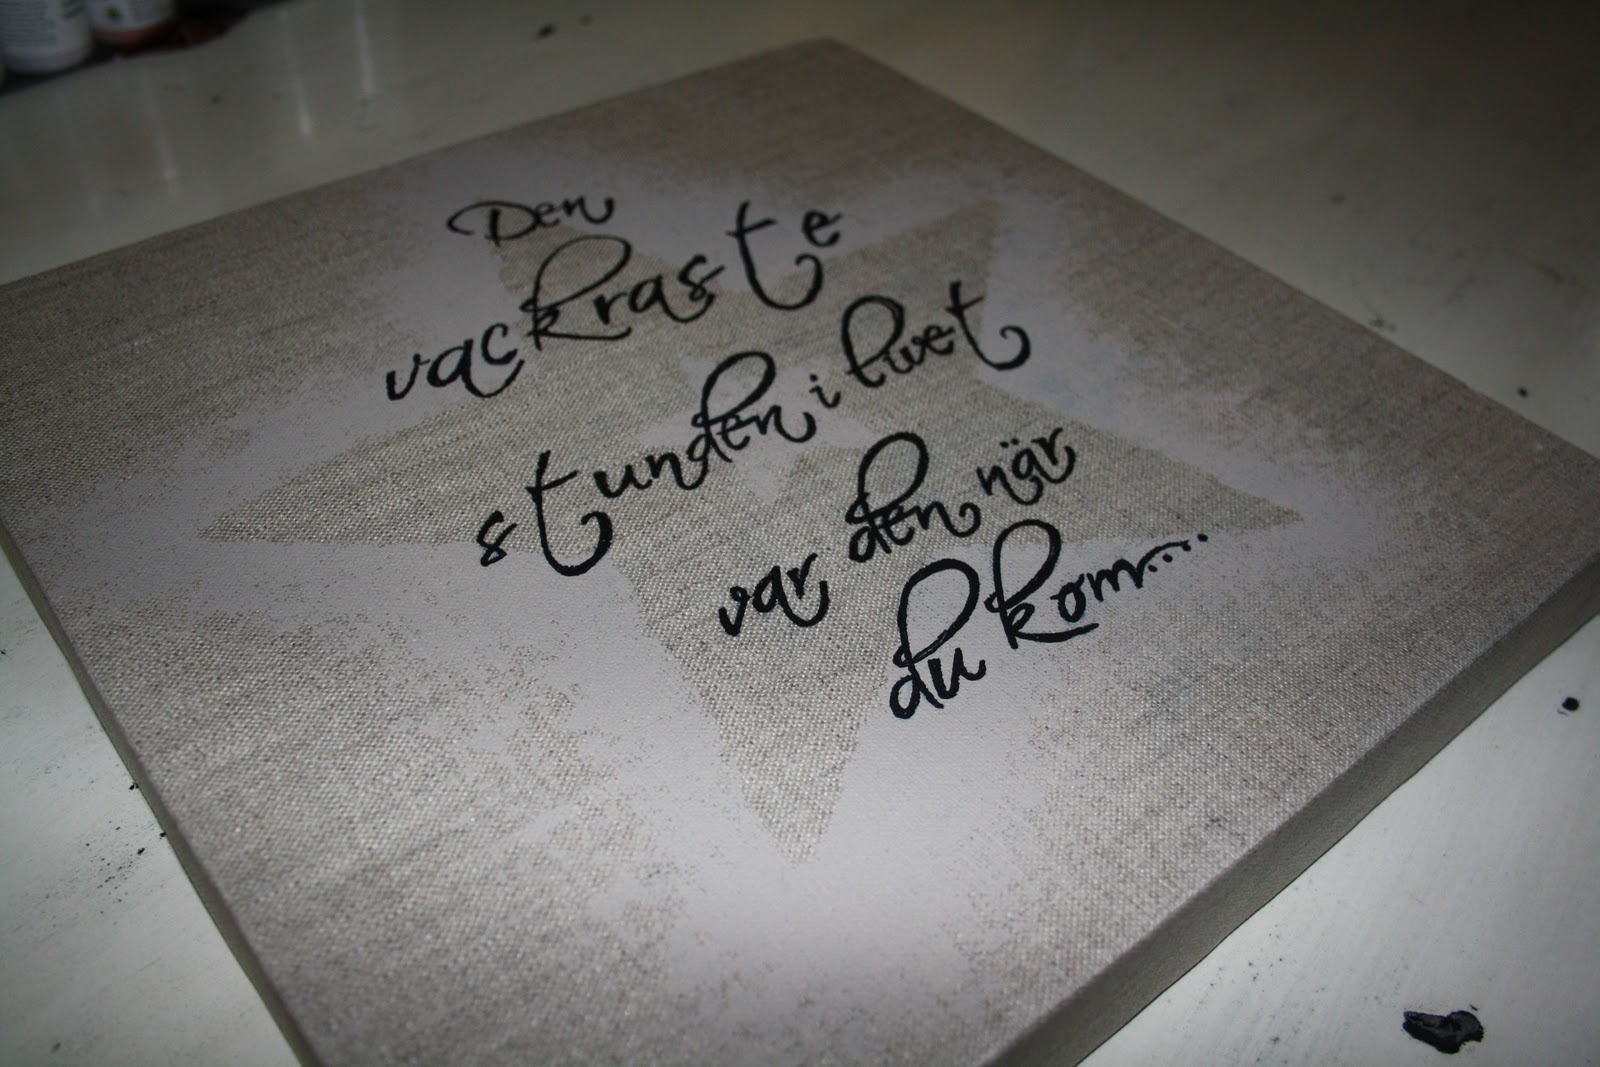 Den
vackraste
stunden i livet
var den när
du kom....